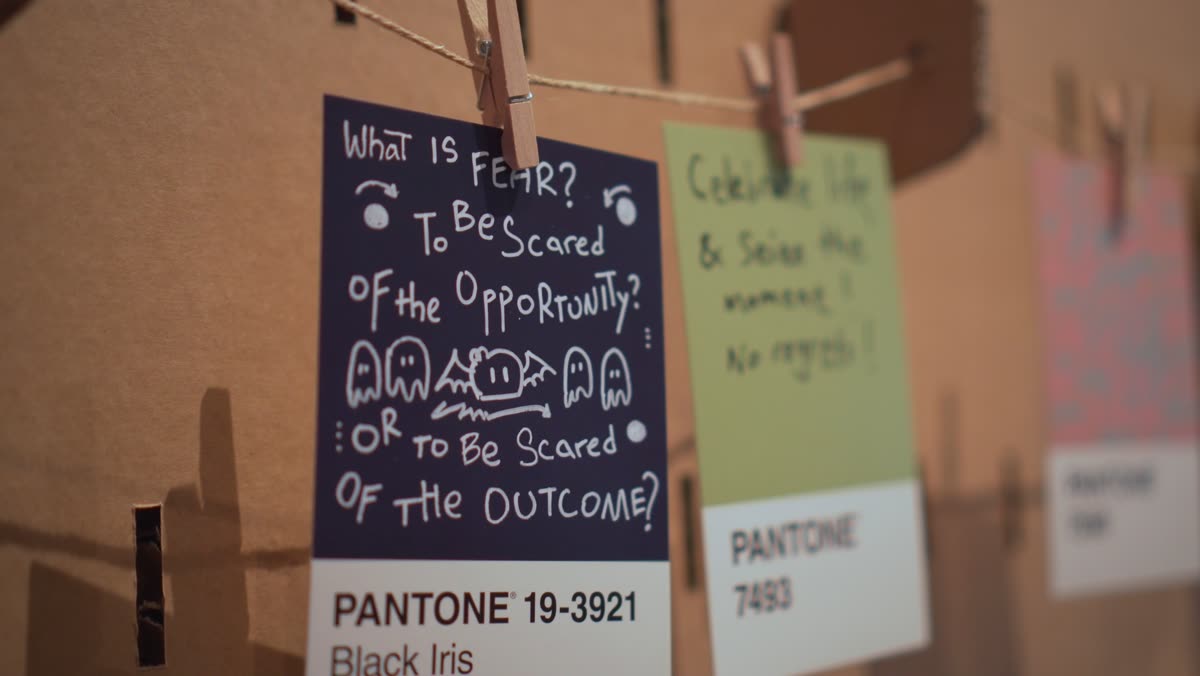 What IS FEAR?
To Be Scared
OF the OPPORTUNITY?
OR TO Be Scared
OF THE OUTCOME?
PANTONE® 19-3921
Black Iris
Celebrate life
& Seize the
moment!
No regrets!
PANTONE
7493
PANTONE